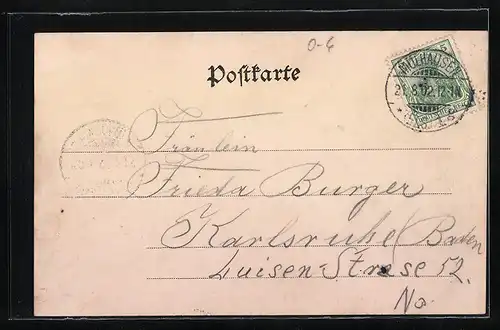 0-4
Postkarte
5
MÜLHAUSEN
21.8.02.12-1N
Fräulein
Frieda Burger
Karlsruhe / Baden
Luisen-Strase 52.
No.